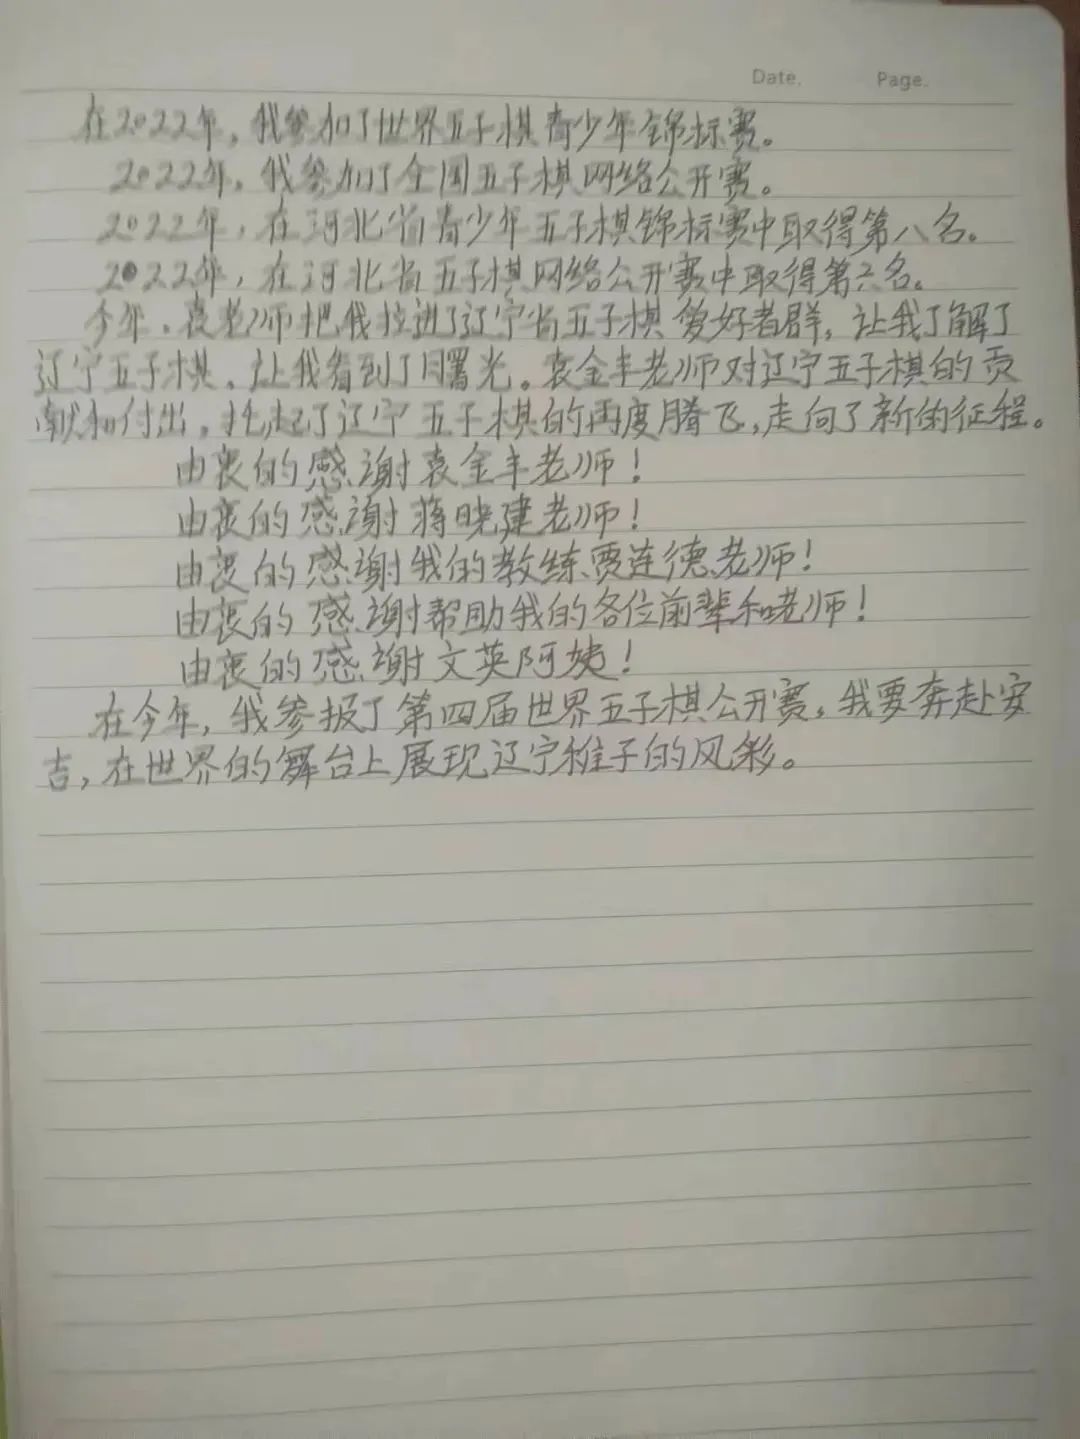 Date. Page.
在2022年，我参加了世界五子棋青少年锦标赛。
2022年，我参加了全国五子棋网络公开赛。
2022年，在河北省青少年五子棋锦标赛中取得第八名。
2022年，在河北省五子棋网络公开赛中取得第六名。
今年，袁老师把我拉进了辽宁省五子棋爱好者群，让我了解了
辽宁五子棋，让我看到了曙光。袁金丰老师对辽宁五子棋的贡
献和付出，托起了辽宁五子棋的再度腾飞，走向了新的征程。
由衷的感谢袁金丰老师！
由衷的感谢蒋晓建老师！
由衷的感谢我的教练贾连德老师！
由衷的感谢帮助我的各位前辈和老师！
由衷的感谢文英阿姨！
在今年，我参报了第四届世界五子棋公开赛。我要奔赴安
吉，在世界的舞台上展现辽宁稚子的风彩。